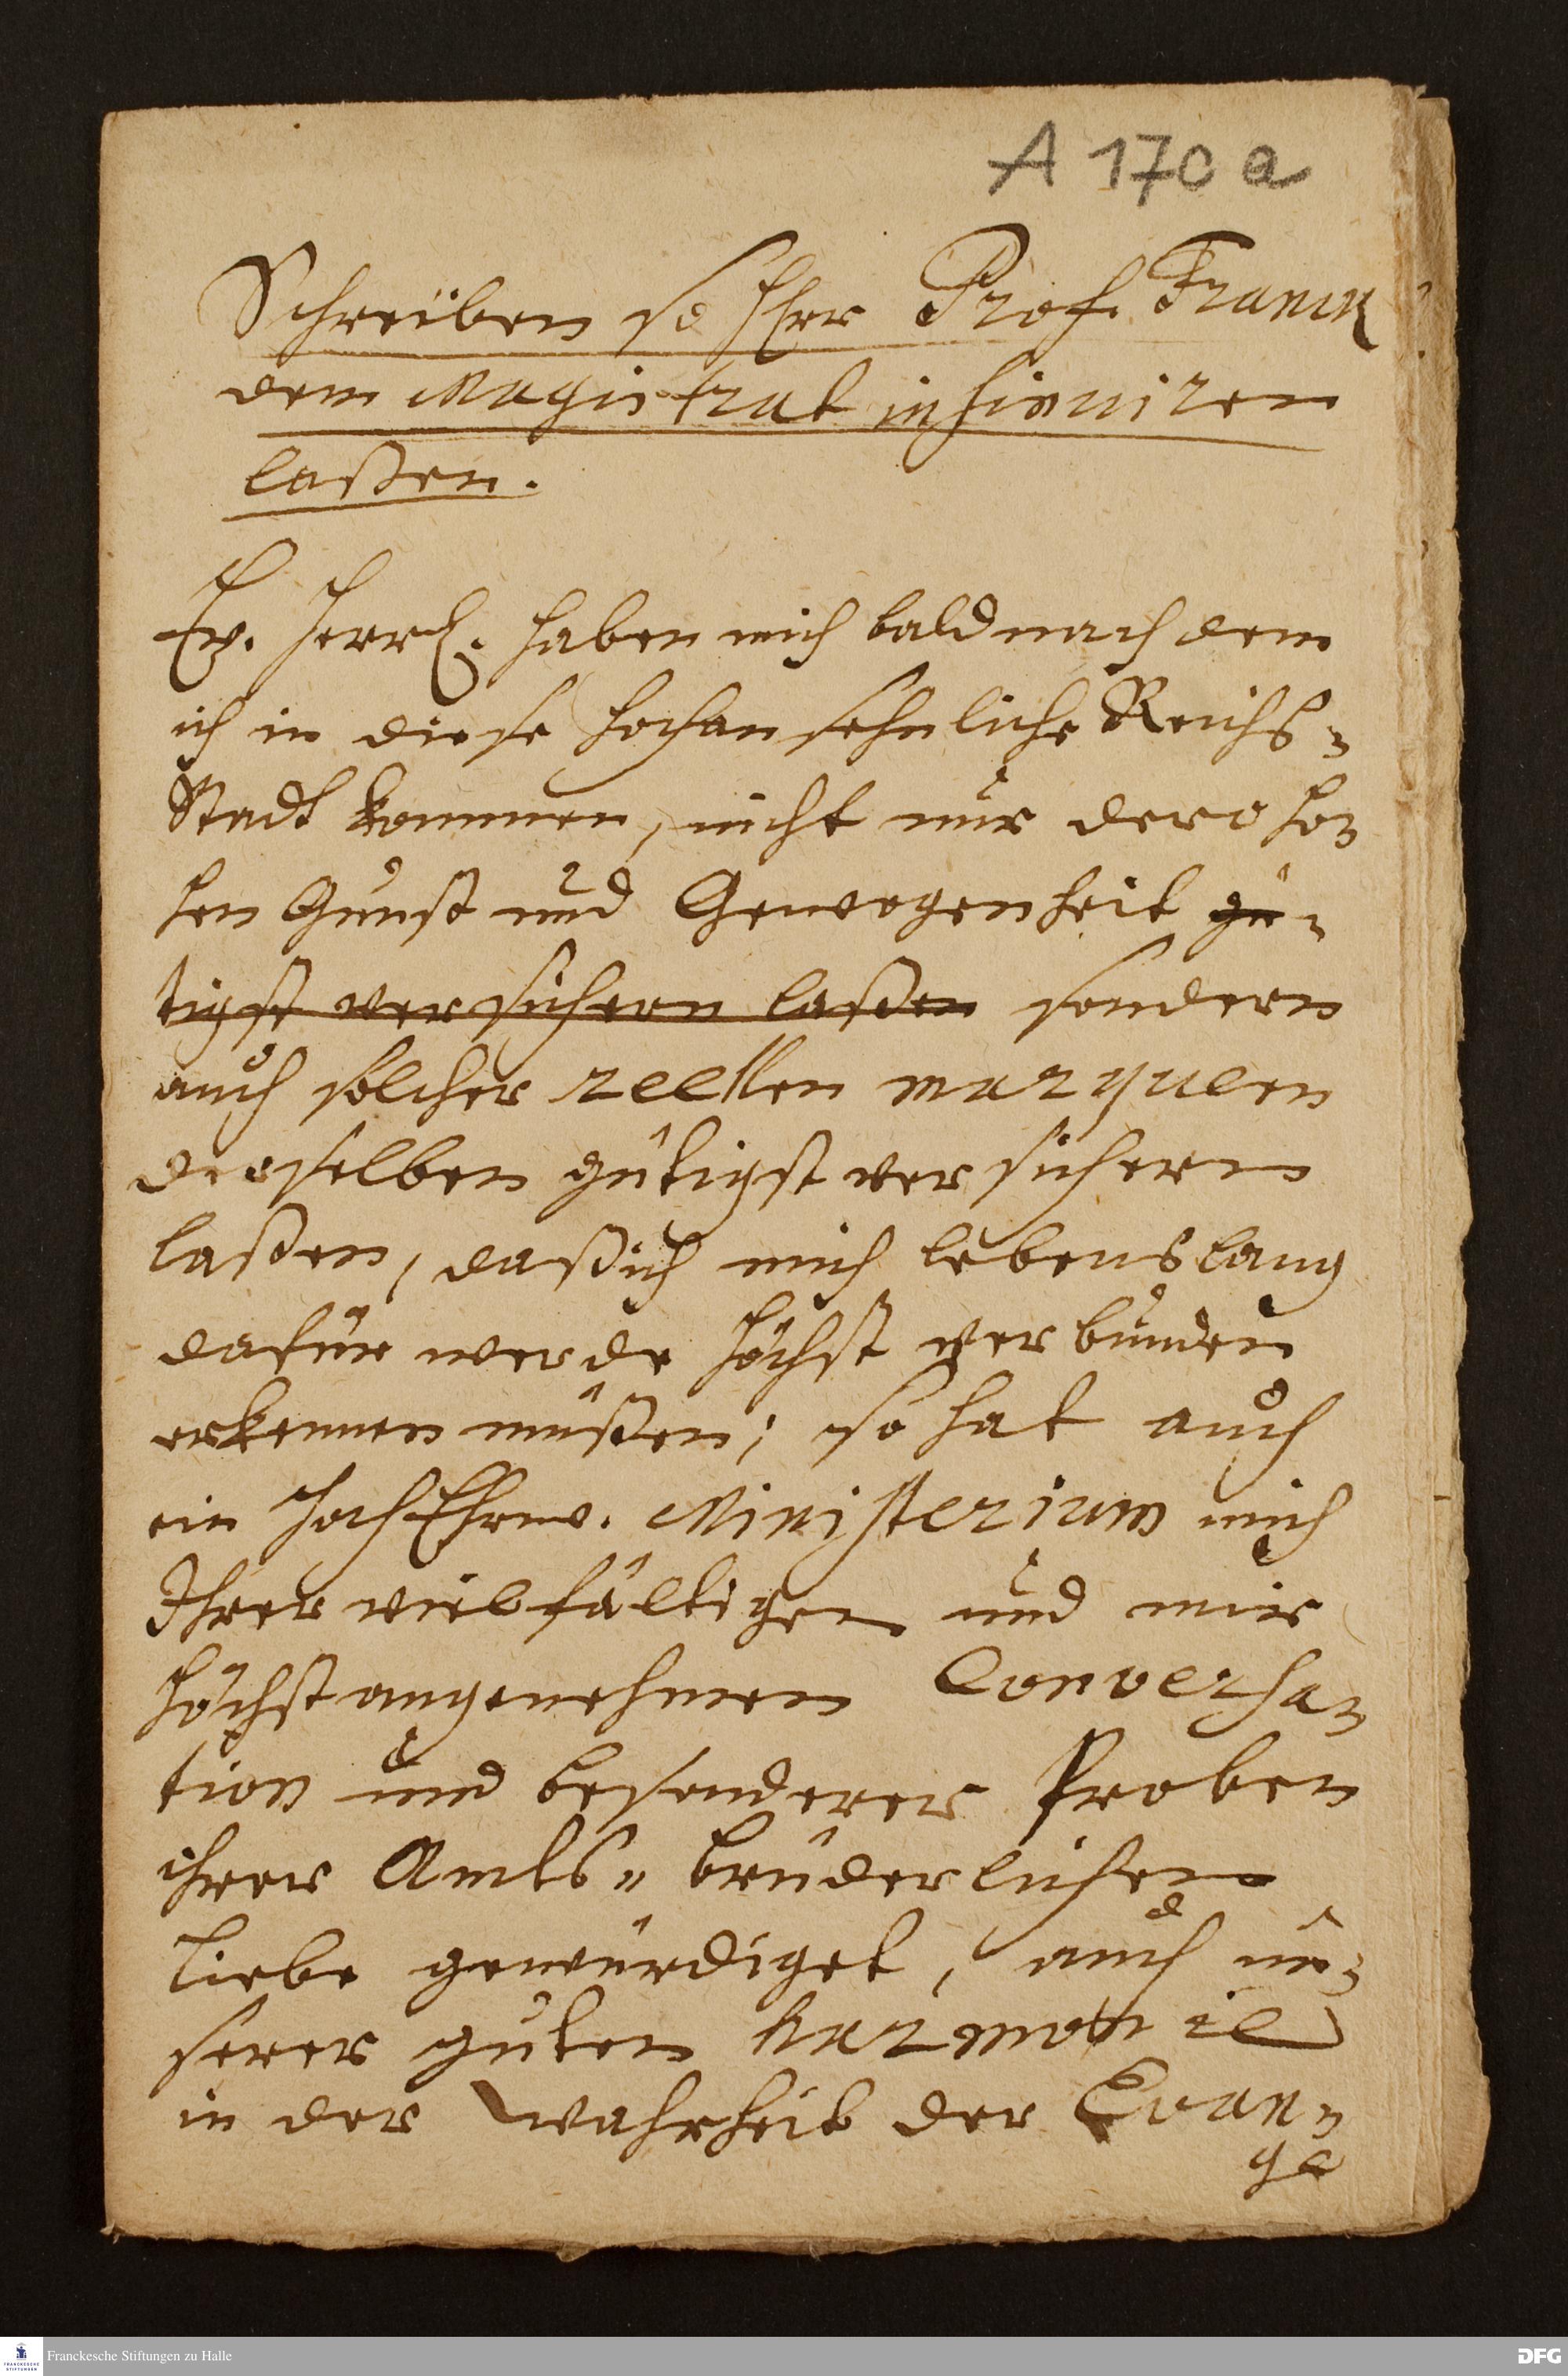 A 170 a
Schreiben so Herr Prof. Franck
dem Magistrat insinuiren
laßen.
Ew. Herrl. haben mich bald nach dem
ich in diese hochansehnliche Reichs-
Stadt kommen, nicht nur dero ho-
hen Gunst und Gewogenheit gü-
tigst versichern laßen sondern
auch solcher reellen marquen
derselben gütigst versichern
laßen, daß ich mich lebenslang
dafür werde höchst verbunden
erkennen müßen; so hat auch
ein HochEhrw. Ministerium mich
Ihrer vielfältigen und mir
höchst angenehmen Conversa-
tion und besonderer Proben
ihrer Amts-brüderlichen
Liebe gewürdiget, auch un-
serer guten harmonie
in der Wahrheit der Evan-
ge
Franckesche Stiftungen zu Halle
DFG